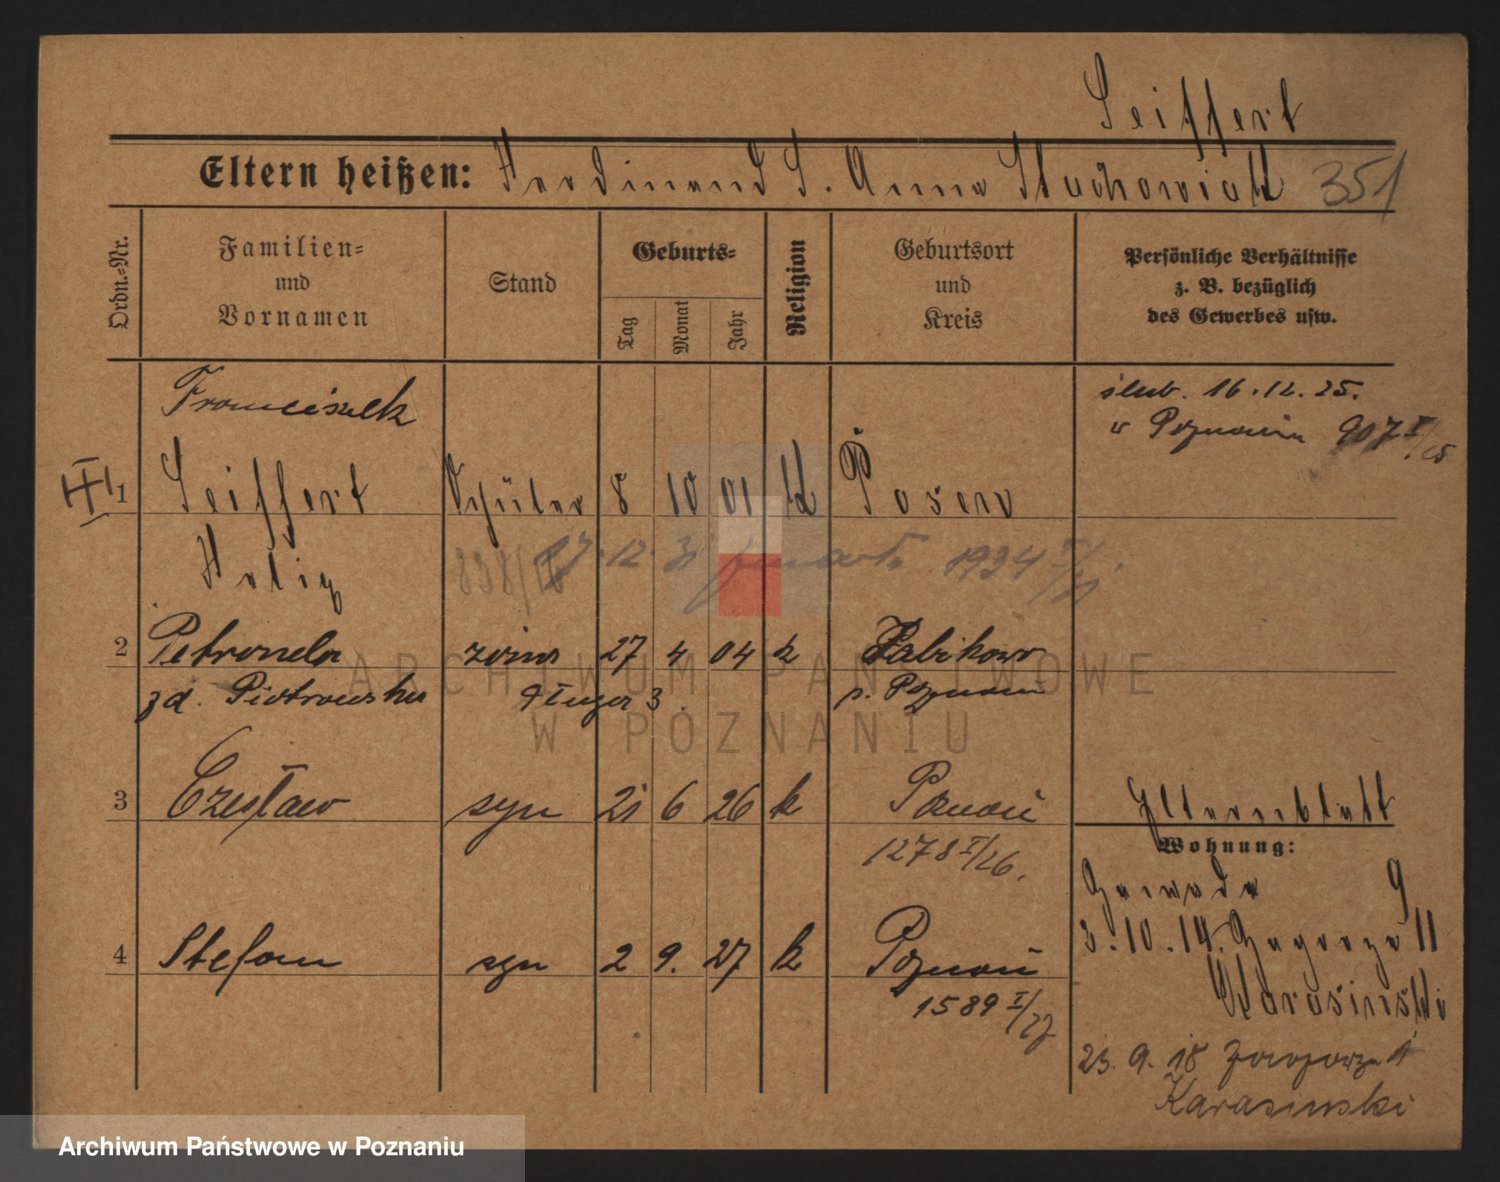 Seiffert
Eltern heißen: Ferdinand S. Anna Stachowiak 351
Ordn.-Nr.
Familien- und Vornamen
Stand
Geburts-
Tag
Monat
Jahr
Religion
Geburtsort und Kreis
Persönliche Verhältnisse z. B. bezüglich des Gewerbes usw.
Franciszek
ślub. 16.12.25.
w Poznaniu 907 I/25
1 Seiffert Schüler 8 10 01 k Posen
Felix
17.12.31 zmarł 1934 I/31
2 Petronela żona 27 4 04 k Żabikowo
zd. Piotrowska Długa 3. p. Poznań
3 Czesław syn 21 6 26 k Poznań
1278 I/26.
Elternblatt
Wohnung:
Gerwade 9
3.10.14. Zagorze 11
Karasinski
4 Stefan syn 2 9. 27 k Poznań
1589 I/27
23.9.18 Zagorze
Karasinski
ARCHIWUM PAŃSTWOWE
W POZNANIU
Archiwum Państwowe w Poznaniu